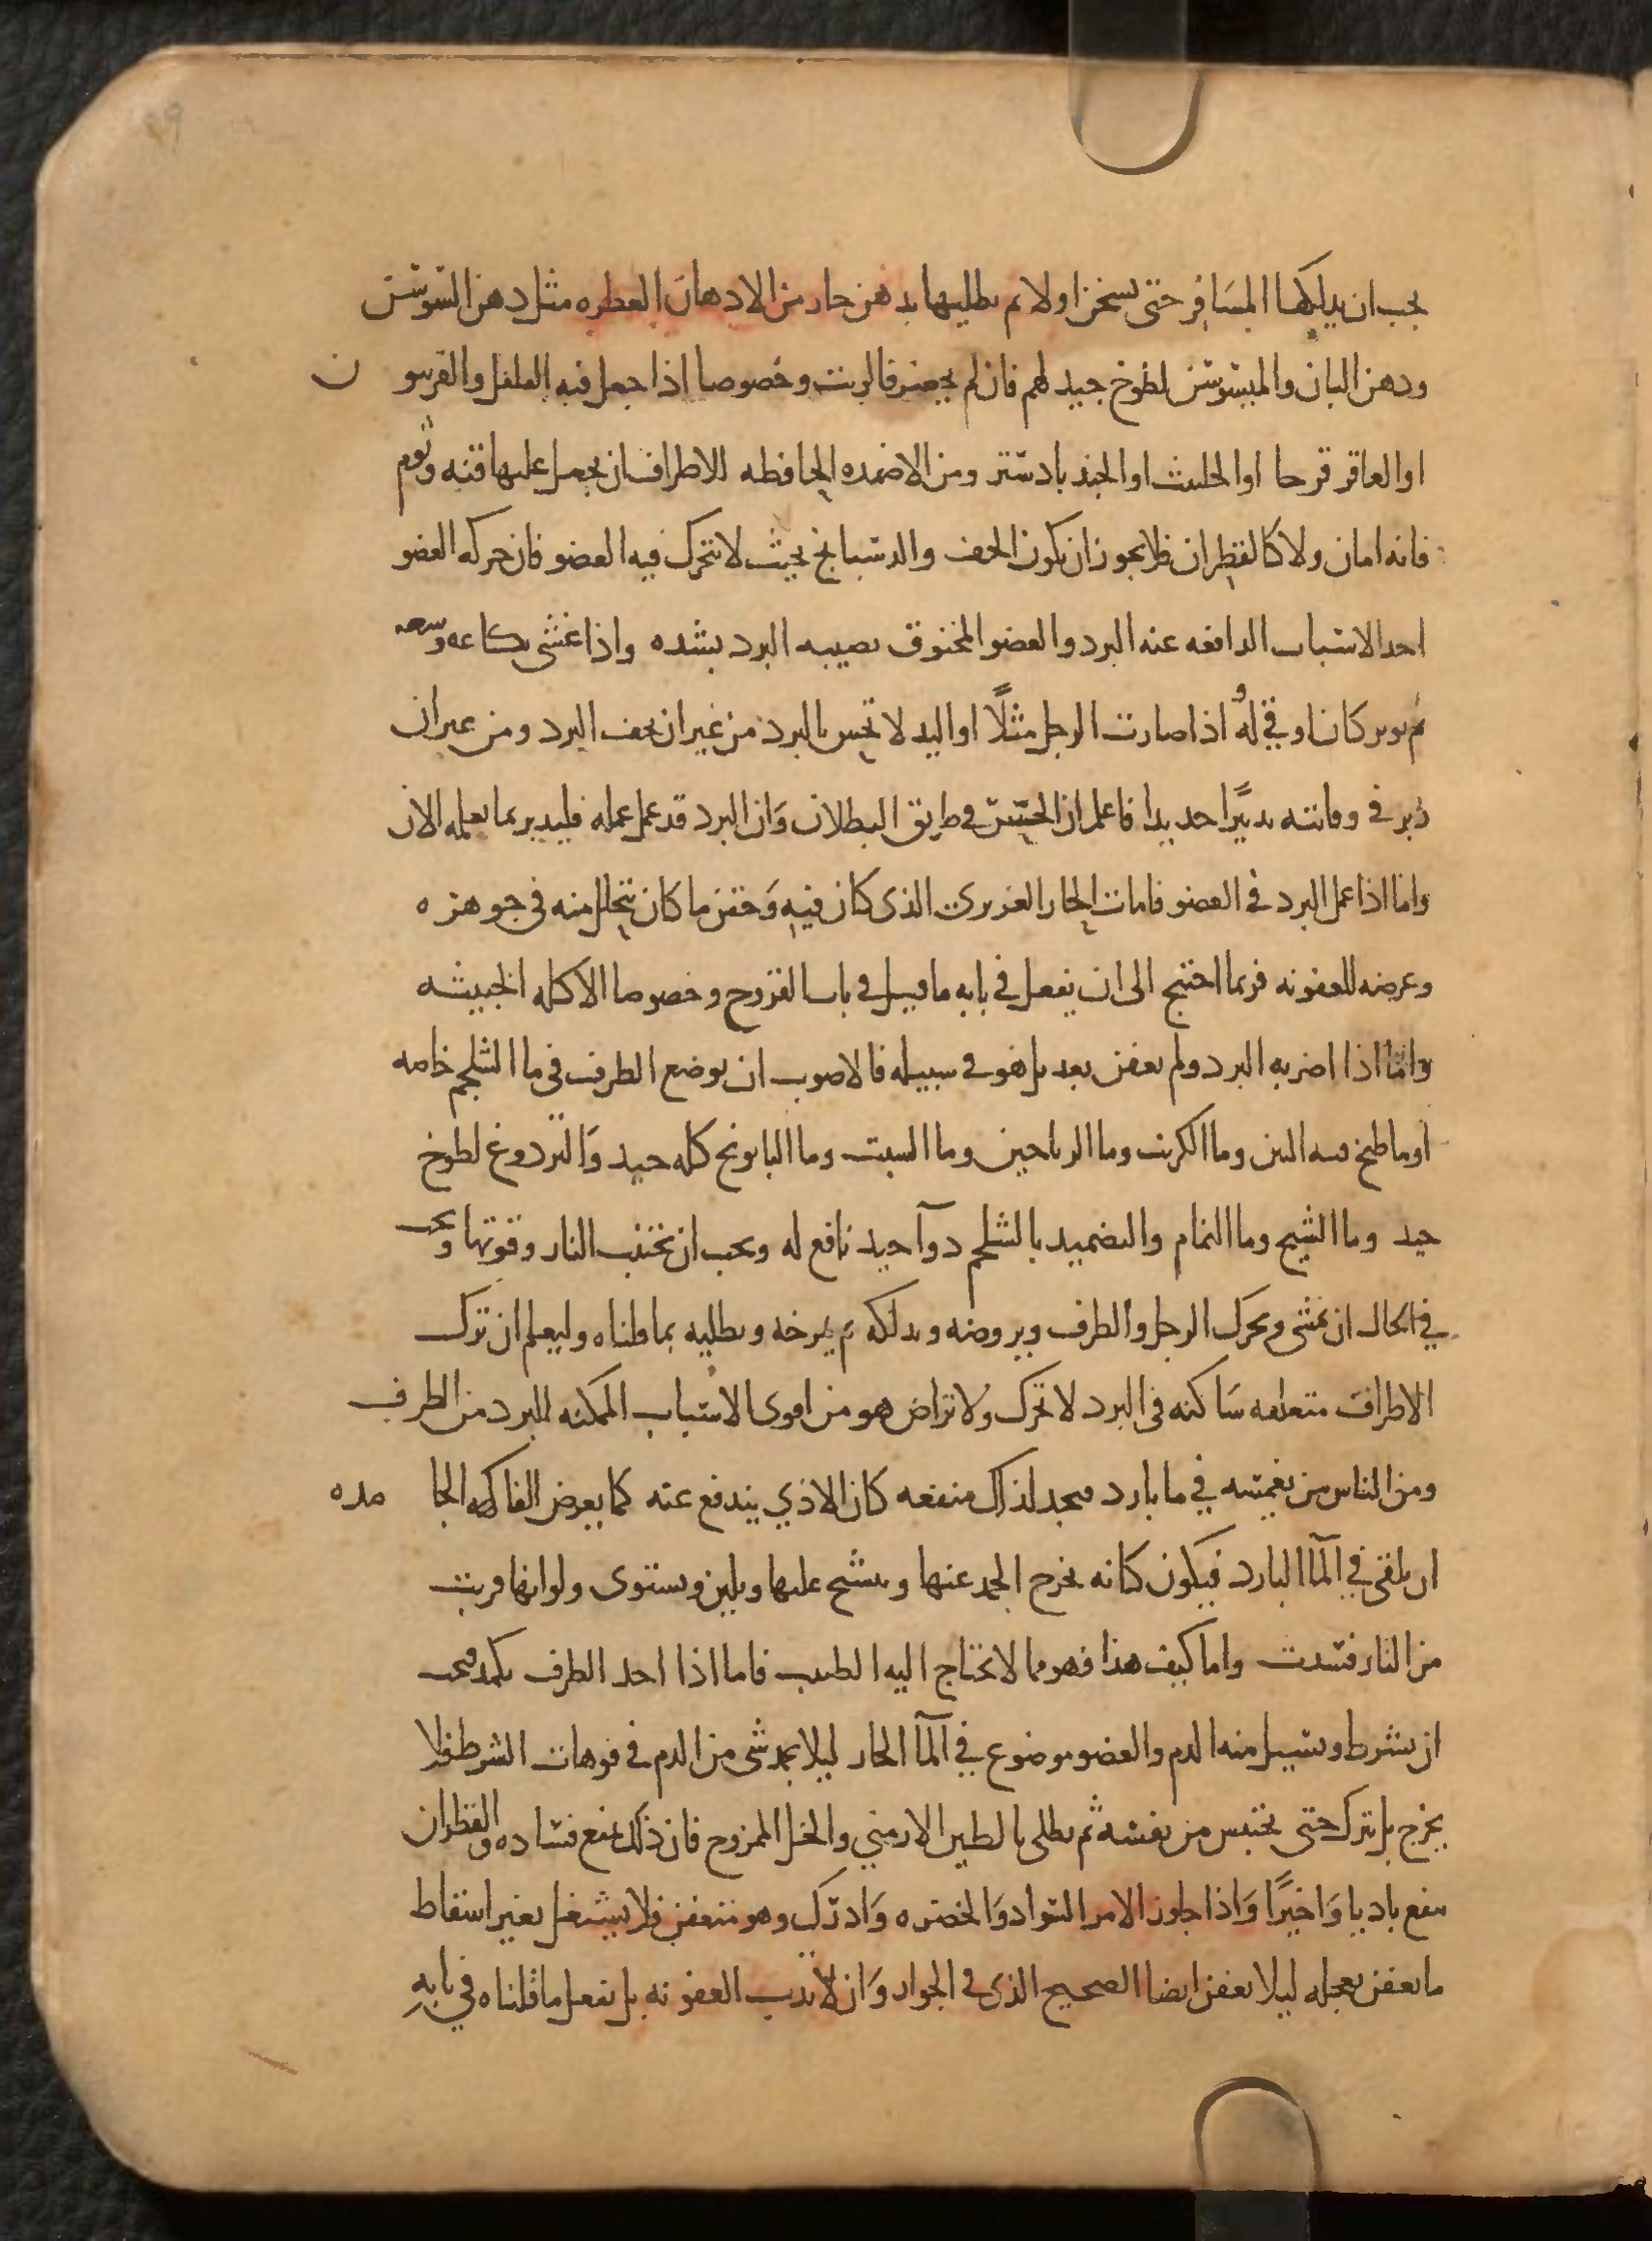 يجب ان يدلكها المسافر حتى يسخن اولا ثم يطليها بدهن حار من الادهان العطره مثل دهن السوسن
ودهن البان والميسوسن لطوخ جيد لهم فان لم يحضر فالزيت وخصوصا اذا جعل فيه الفلفل والفربيون
او العاقر قرحا او الحلتيت او الجندبادستر ومن الاضمده الحافظه للاطراف ان يجعل عليها قنه وثوم
فانه امان ولا كالقطران فلا يجوز ان يكون الخف والدستبانج بحيث لا يتحرك فيه العضو فان حركه العضو
احد الاسباب الدافعه عنه البرد والعضو المخنوق يصيبه البرد بشده واذا غشى بكاغد وشعر
ثم وبر كان اوقى له اذا صارت الرجل مثلًا او اليد لا تحس بالبرد من غير ان يخف البرد ومن غير ان
دبر في وقايته تدبيرًا جديدا فاعلم ان الحس في طريق البطلان وان البرد قد عمل عمله فليدبر بما تعلمه الان
واما اذا عمل البرد في العضو فامات الحار الغريزي الذي كان فيه وحقن ما كان يتحلل منه في جوهره
وعرضه للعفونه فربما احتيج الى ان يفعل في بابه ما قيل في باب القروح وخصوصا الاكله الخبيثه
واما اذا اضر به البرد ولم يعفن بعد بل هو في سبيله فالاصوب ان يوضع الطرف في ما الثلجم خاصه
او ما طبخ فيه التين وما الكرنب وما الرياحين وما الشبت وما البابونج كله جيد والتردوغ لطوخ
جيد وما الشيح وما النمام والتضميد بالشلجم دوآ جيد نافع له ويجب ان يجتنب النار وقوتها ويجب
في الحال ان يمشى ويحرك الرجل والطرف ويروضه ويدلكه ثم يمرخه ويطليه بما قلناه وليعلم ان ترك
الاطراف متعلقه ساكنه في البرد لا تحرك ولا تراض هو من اقوى الاسباب الممكنه للبرد من الطرف
ومن الناس من يغمسه في ما بارد فيجد لذلك منفعه كان الاذي يندفع عنه كما يعرض الفاكهه الجا مده
ان يلقى في المآ البارد فيكون كانه يخرج الجمد عنها وينتسج عليها ويلين ويستوى ولو انها قربت
من النار فسدت واما كيف هذا فهو مما لا يحتاج اليه الطبيب فاما اذا اخذ الطرف يكمد فيجب
ان يشرط ويسيل منه الدم والعضو موضوع في المآ الحار ليلا يجمد شى من الدم في فوهات الشرط فلا
يخرج بل يترك حتى يحتبس من نفسه ثم يطلى بالطين الارمني والخل الممزوج فان ذلك يمنع فساده والقطران
ينفع باديا واخيرًا واذا جاوز الامر السواد والخضره وادرك وهو يتعفن فلا يشتغل بغير اسقاط
ما يعفن بعجله ليلا يعفن ايضا الصحيح الذي في الجوار وان لا تدب العفونه بل يفعل ما قلناه في بابه